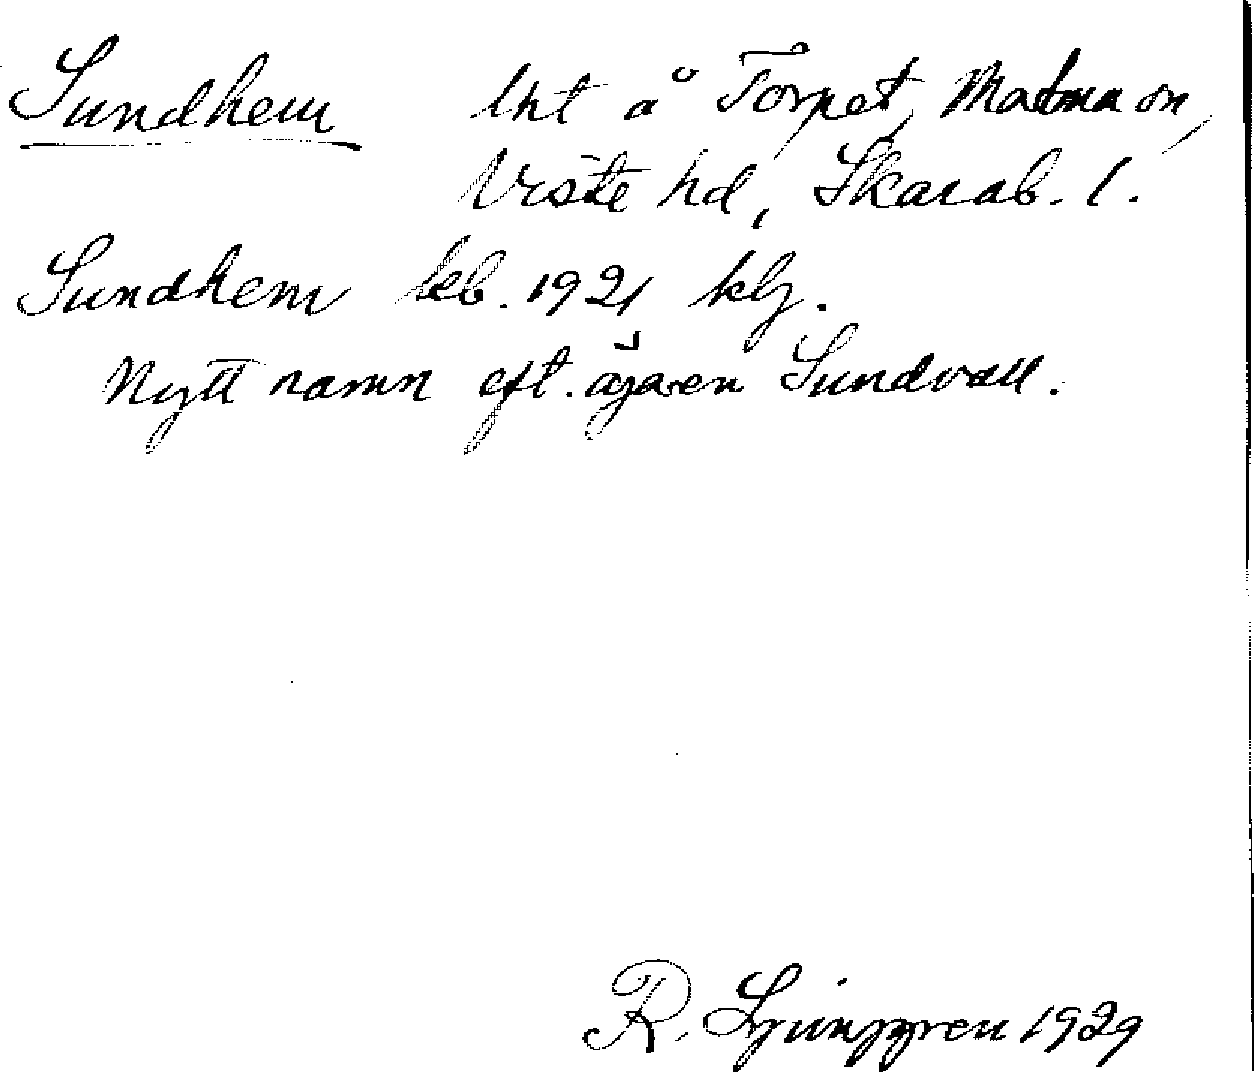 Sundhem lht å Torpet, Malma sn,
Viste hd, Skarab. l.
Sundhem kb. 1921 klj.
Nytt namn eft. ägaren Sundvall.
R. Ljunggren 1929